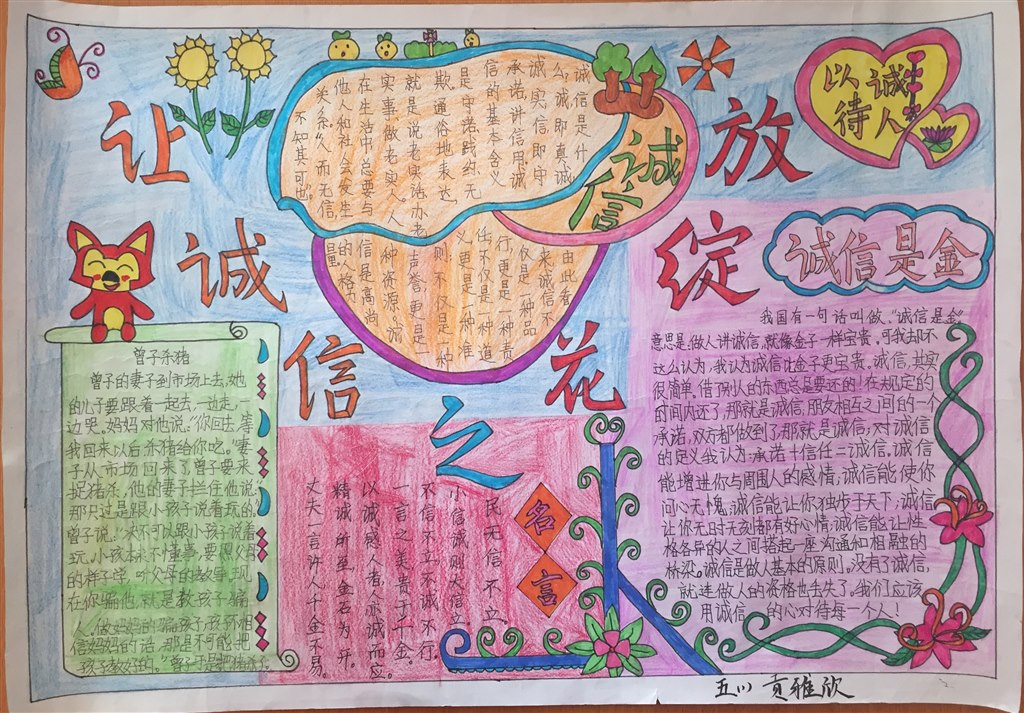 让
诚
信
之
花
绽
放
以诚
待人
诚
信
诚信是什
么，诚即真诚
诚实，信即守
承诺，讲信用，诚
信的基本含义
是守诺、践约、无
欺。通俗地表达，
就是说老实话、办老
实事、做老实人。人
在生活中总要与
他人和社会发生
关系。“人而无信，
不知其可也”
由此看
来，诚信不
仅是一种品
行，更是一种责
任；不仅是一种道
义，更是一种准
则；不仅是一种
声誉，更是一
种资源。诚
信是高尚
的人格力
量。
曾子杀猪
曾子的妻子到市场上去，她
的儿子要跟着一起去，一边走，一
边哭。妈妈对他说：“你回去，等
我回来以后，杀猪给你吃。”妻
子从市场回来了，曾子要来
捉猪杀，他的妻子拦住他说：
那只过是跟小孩子说着玩的。
曾子说：“决不可以跟小孩子说着
玩，小孩本来不懂事，要照父母
的样子学，听父母的教导。现
在你骗他，就是教孩子骗
人。做妈妈的骗孩子，孩子不相
信妈妈的话，那是不可能把
孩子教好的。”曾子于是把猪杀了。
名
言
民无信不立。
小信诚则大信立。
不信不立，不诚不行。
一言之美，贵于千金。
以诚感人者，人亦诚而应。
精诚所至，金石为开。
丈夫一言许人，千金不易。
诚信是金
我国有一句话叫做，“诚信是金”
意思是做人讲诚信，就像金子一样宝贵。可我却不
这么认为，我认为诚信比金子更宝贵。诚信，其实
很简单。借别人的东西总是要还的！在规定的
时间内还了，那就是诚信；朋友相互之间的一个
承诺，双方都做到了，那就是诚信；对诚信
的定义我认为：承诺十信任二诚信。诚信
能增进你与周围人的感情；诚信能使你
问心无愧；诚信能让你独步于天下；诚信
让你无时无刻都有好心情；诚信能让性
格各异的人之间搭起一座沟通和相融的
桥梁。诚信是做人基本的原则。没有了诚信，
就连做人的资格也丢失了。我们应该
用诚信的心对待每一个人！
五（1） 贡雅欣